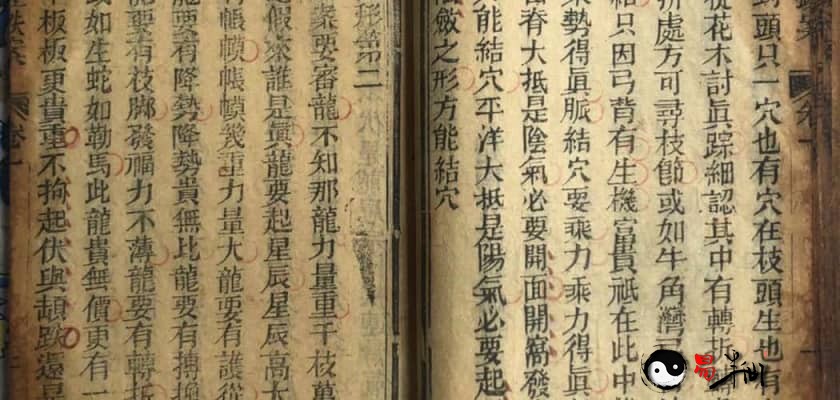 卷一
對頭只一穴也有穴在枝頭生也有
花木討眞踪細認其中有轉折
折處方可尋枝節或如牛角灣弓
結只因弓背有生機富貴祇在此中
勢得眞脈結穴要乘力乘力得眞
脊大抵是陰氣必要開面開窩發
能結穴平洋大抵是陽氣必要起
斂之形方能結穴
形第二
衆要審龍不知那龍力量重千枝萬
是假來誰是眞龍要起星辰星辰高大
有帳幙帳幙幾重力量大龍要有護從
龍要有降勢降勢貴無比龍要有摶換
要有枝脚發福力不薄龍要有轉折
或如生蛇如勒馬此龍貴無價更有一
板板更貴重不拘起伏與頓跌還是
卷一